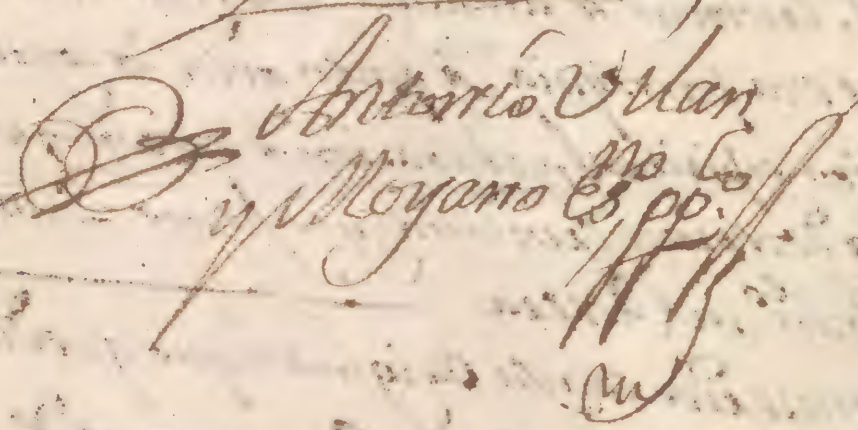 Antonio Vilan
y Moyano es.no pp.co